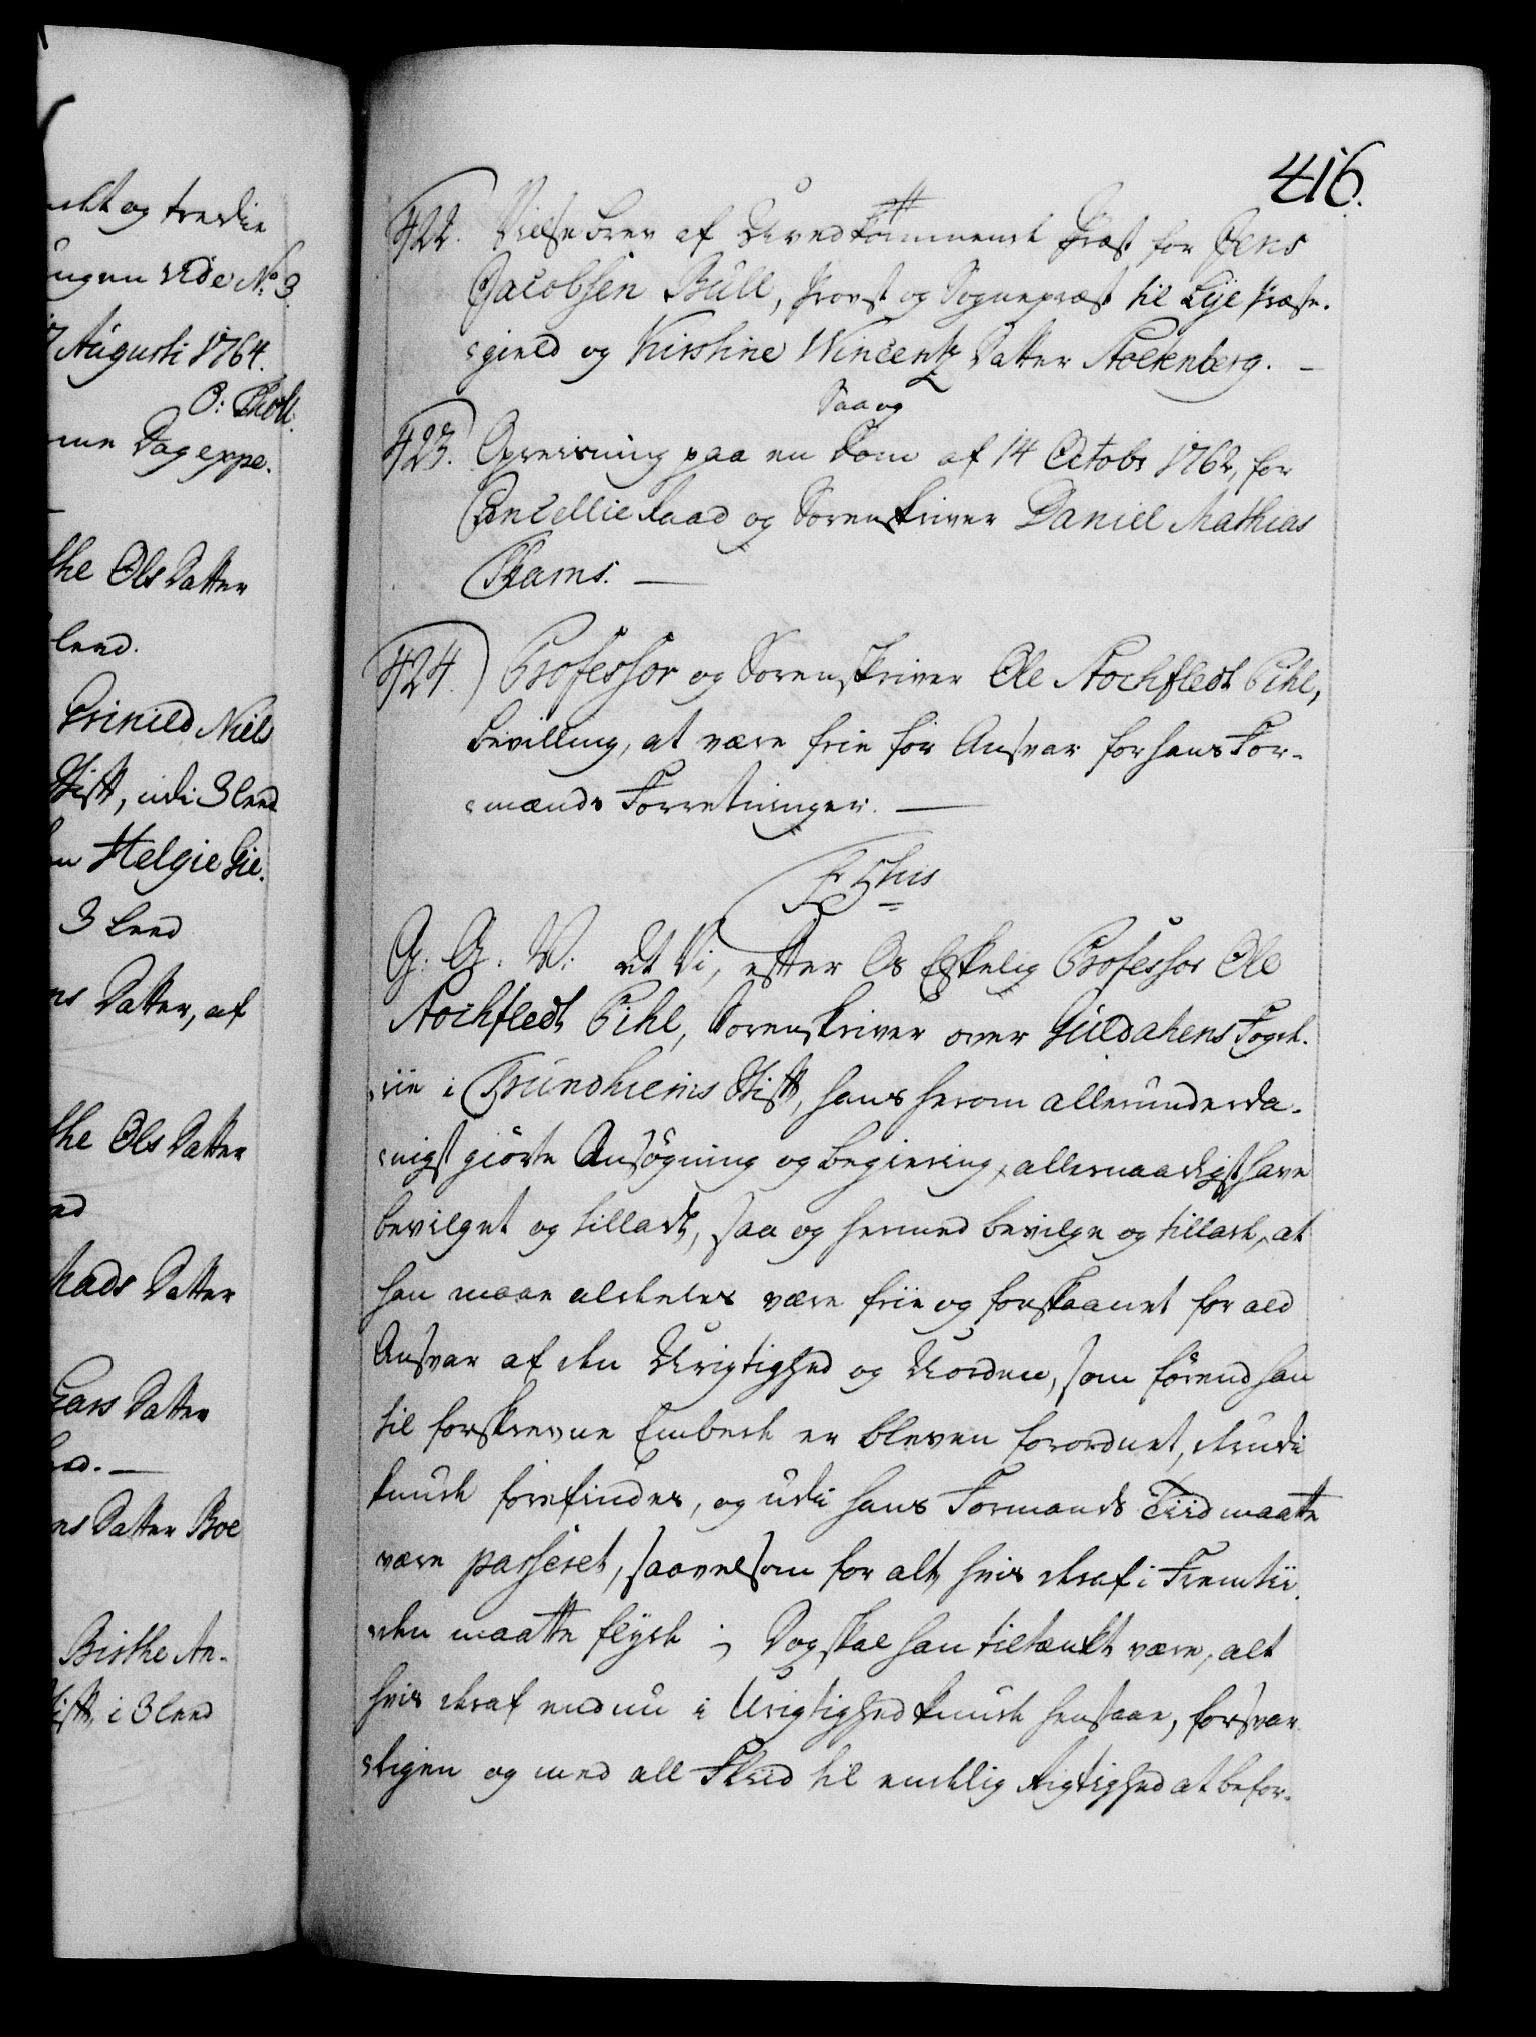 416.
422. Vielse brev af Uvedkommende Præst for Jens
Jacobsen Bull, Provst og Sognepræst til Lye Præste-
gield og Kirstine Wincentz Datter Stoltenberg.
Saa og
423. Opreisning paa en Dom af 14 Octobr 1762, for
Cancellie Raad og Sorenskriver Daniel Mathias
Rams.
424. Professor og Sorenskriver Ole Stockfledt Pihl,
Bevilling, at være frie for Ansvar for hans For-
mænds Forretninger.
G. G. V. At Vi, efter Os Elskelig Professor Ole
Stockfledt Pihl, Sorenskriver over Guldahlens Fogde-
rie i Trundhiems Stift, hans herom allerunderda-
nigst giørte Ansøgning og Begiering, allernaadigst have
bevilget og tilladt, saa og hermed bevilge og tillade, at
han maae aldeles være frie og forskaanet for ald
Ansvar af den Urigtighed og Uorden, som førend han
til forskrevne Embede er bleven forordnet, derudi
kunde forefindes, og udi hans Formands Tiid maatte
være passeret, saavelsom for alt hvis deraf i Fremtii-
den maatte flyde ; Dog skal han tiltænkt være, alt
hvis deraf endnu i Urigtighed kunde henstaae, forsvar-
ligen og med all Fliid til endelig Rigtighed at befor-
ndet og tredie
ungen vide No 3.
17 Augusti 1764.
O: Thott.
Dag expe.
the Ols Datter
leed.
Niels
Stift, udi 3 leed
Helgie Gie.
3 leed
ns Datter, af
the Ols Datter
ed
Mads Datter
Lars Datter
ed.
ns Datter Boe
Birthe An-
Stift, i 3 leed